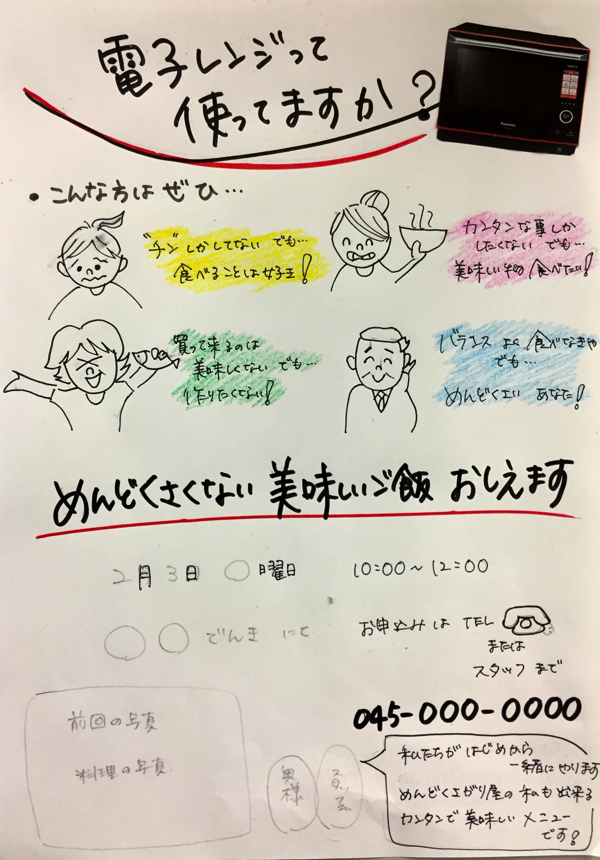 電子レンジって
使ってますか?
Panasonic
• こんな方は ぜひ…
"チン"しかしてない でも…
食べることは女子王!
カンタンな事しか
したくない でも…
美味しいもの 食べたい!
買って来るのは
美味しくない でも…
作りたくない!
バランス よく 食べなきゃ
でも…
めんどくさい あなた!
めんどくさくない 美味しいご飯 おしえます
2月 3日 ○曜日 10:00~12:00
○○でんき にて
お申込みは TEL
または
スタッフ まで
045-000-0000
前回の写真
料理の写真
奥様
私たちが はじめから
一緒にやります
めんどくさがり屋の 私も 出来る
カンタンで 美味しい メニュー
です!